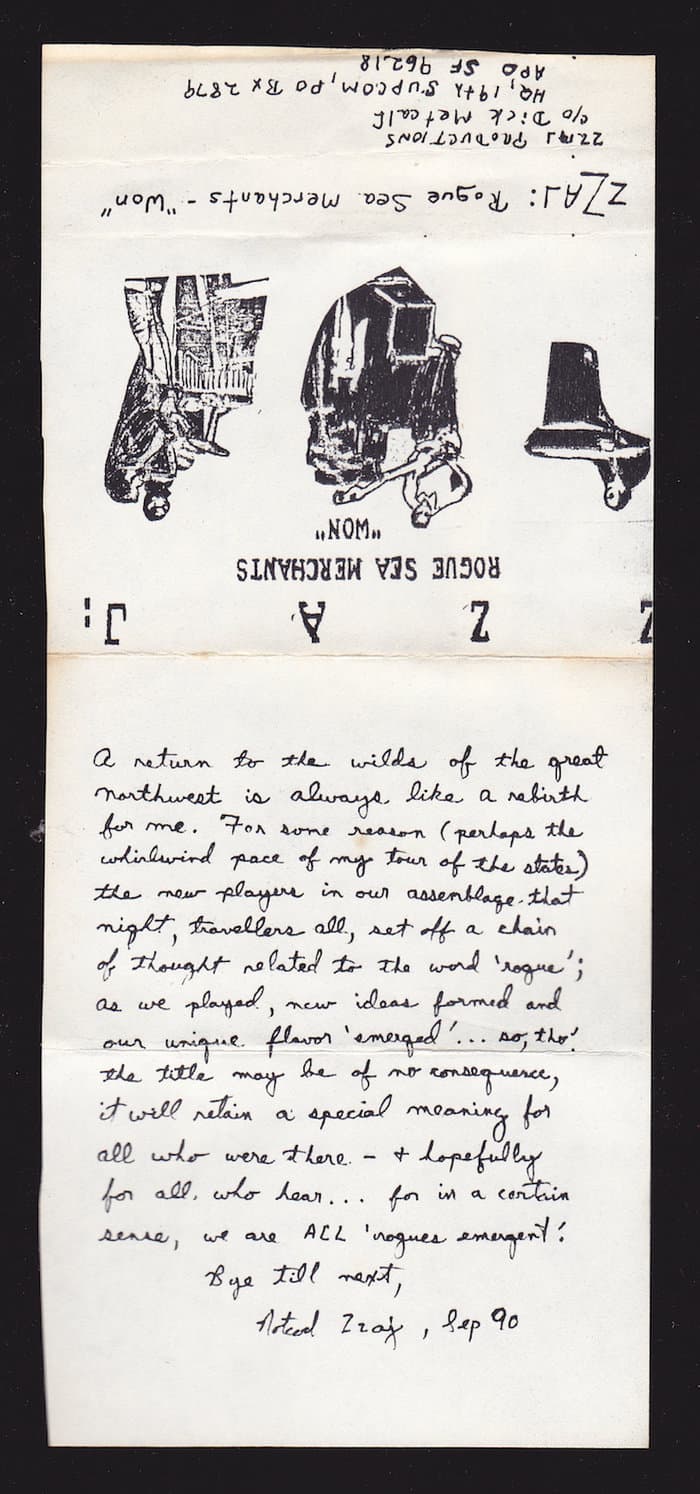 Z Z A J:
ROGUE SEA MERCHANTS
"WON"
ZZAJ: Rogue Sea Merchants - "Won"
ZZAJ PRODUCTIONS
c/o Dick Metcalf
HQ, 19th SUPCOM, PO Bx 2879
APO SF 96218
A return to the wilds of the great
northwest is always like a rebirth
for me. For some reason (perhaps the
whirlwind pace of my tour of the states)
the new players in our assemblage that
night, travellers all, set off a chain
of thought related to the word 'rogue';
as we played, new ideas formed and
our unique flavor 'emerged'... so, tho'
the title may be of no consequence,
it will retain a special meaning for
all who were there - + hopefully
for all who hear... for in a certain
sense, we are ALL 'rogues emergent'!
Bye till next,
Rotcod Zzaj, Sep 90